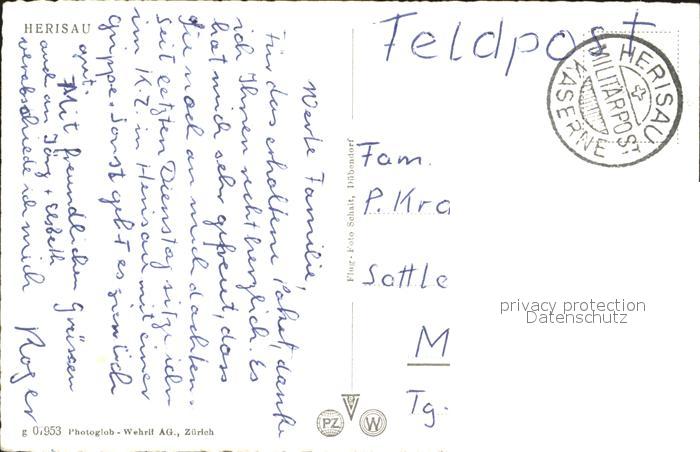 HERISAU
Feldpost
HERISAU
MILITÄRPOST
KASERNE
Werte Familie,
für das erhaltene Paket, danke
ich Ihnen recht herzlich. Es
hat mich sehr gefreut, dass
Sie noch an mich dachten.
Seit letzten Dienstag sitze ich
im K.Z. in Herisau mit einer
Grippe. Sonst geht es ziemlich
gut.
Mit freundlichen Grüssen
auch an Jürg + Elsbeth
verabschiede ich mich
Roger
Fam.
P. Kra
Sattle
M
Tg.
privacy protection
Datenschutz
Flug-Foto Schait, Dübendorf
PZ
W
g 01953 Photoglob - Wehrli AG., Zürich